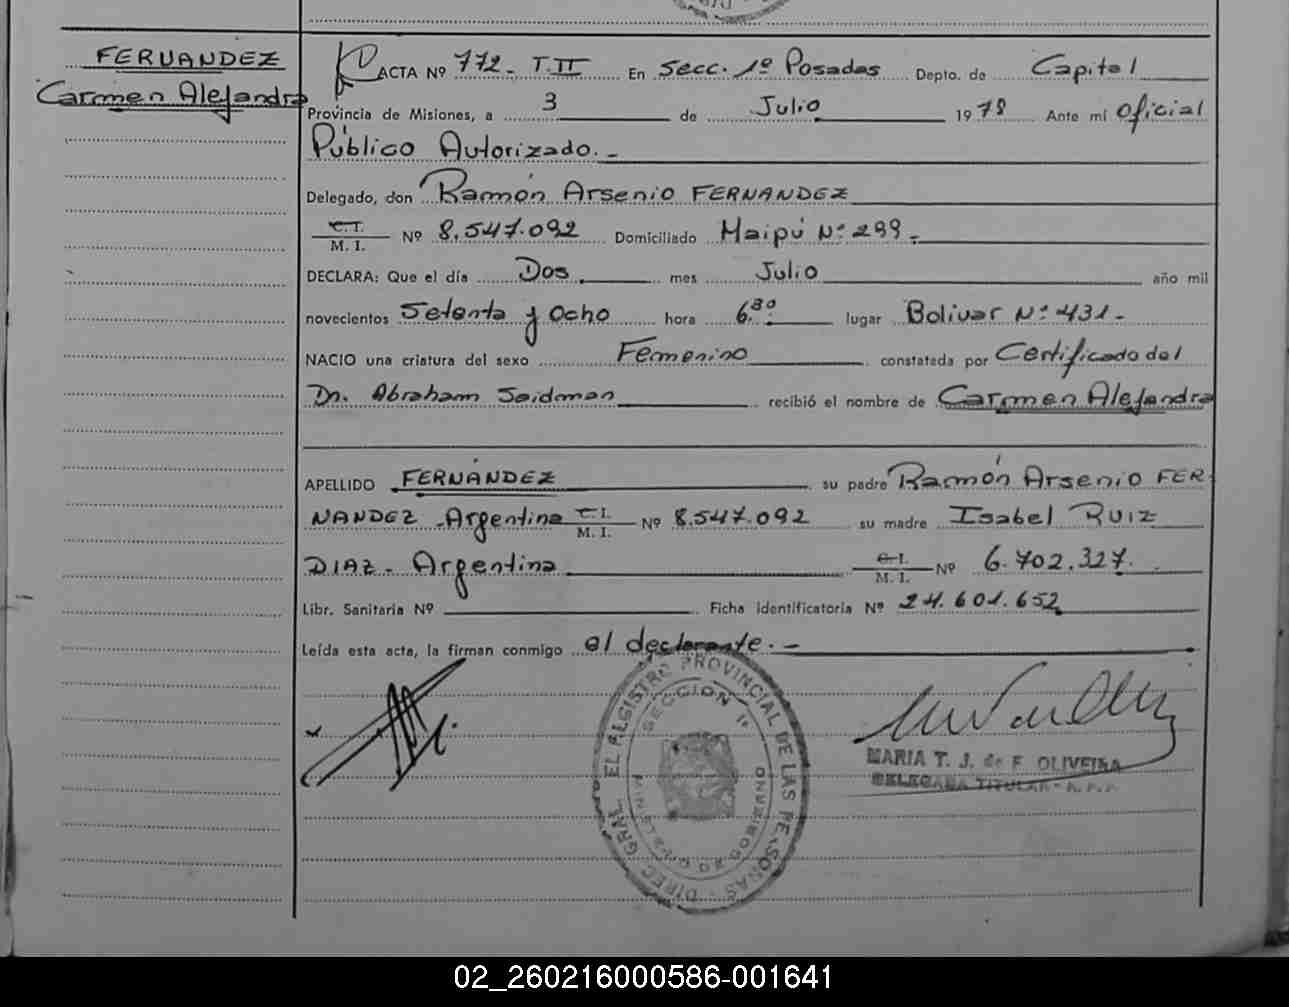 FERNANDEZ
Carmen Alejandra
ACTA Nº 772 - T. II En Secc. 1º Posadas Depto. de Capital
Provincia de Misiones, a 3 de Julio 1978 Ante mi Oficial
Público Autorizado. -
Delegado, don Ramón Arsenio FERNANDEZ
C. I.
M. I. Nº 8.547.092 Domiciliado Maipú Nº 299 -
DECLARA: Que el día Dos mes Julio año mil
novecientos Setenta y Ocho hora 6.30 lugar Bolivar Nº 431 -
NACIO una criatura del sexo Femenino constatada por Certificado del
Dr. Abraham Saidman recibió el nombre de Carmen Alejandra
APELLIDO FERNÁNDEZ su padre Ramón Arsenio FER
NANDEZ - Argentina C. I.
M. I. Nº 8.547.092 su madre Isabel RUIZ
DIAZ - Argentina C. I.
M. I. Nº 6.702.327.
Libr. Sanitaria Nº Ficha Identificatoria Nº 24.601.652
Leída esta acta, la firman conmigo el declarante. -
PROVINCIAL DE LAS PERSONAS - DIREC. GRAL.
SECCION 1ª
MARIA T. J. de F. OLIVEIRA
DELEGADA TITULAR - R.P.P.
02_260216000586-001641